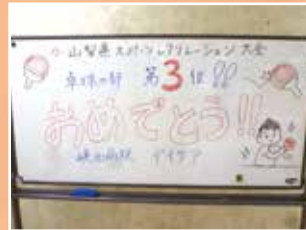 山梨県スポーツレクリエーション大会
卓球の部 第3位!!
おめでとう!!
病院 デイケア